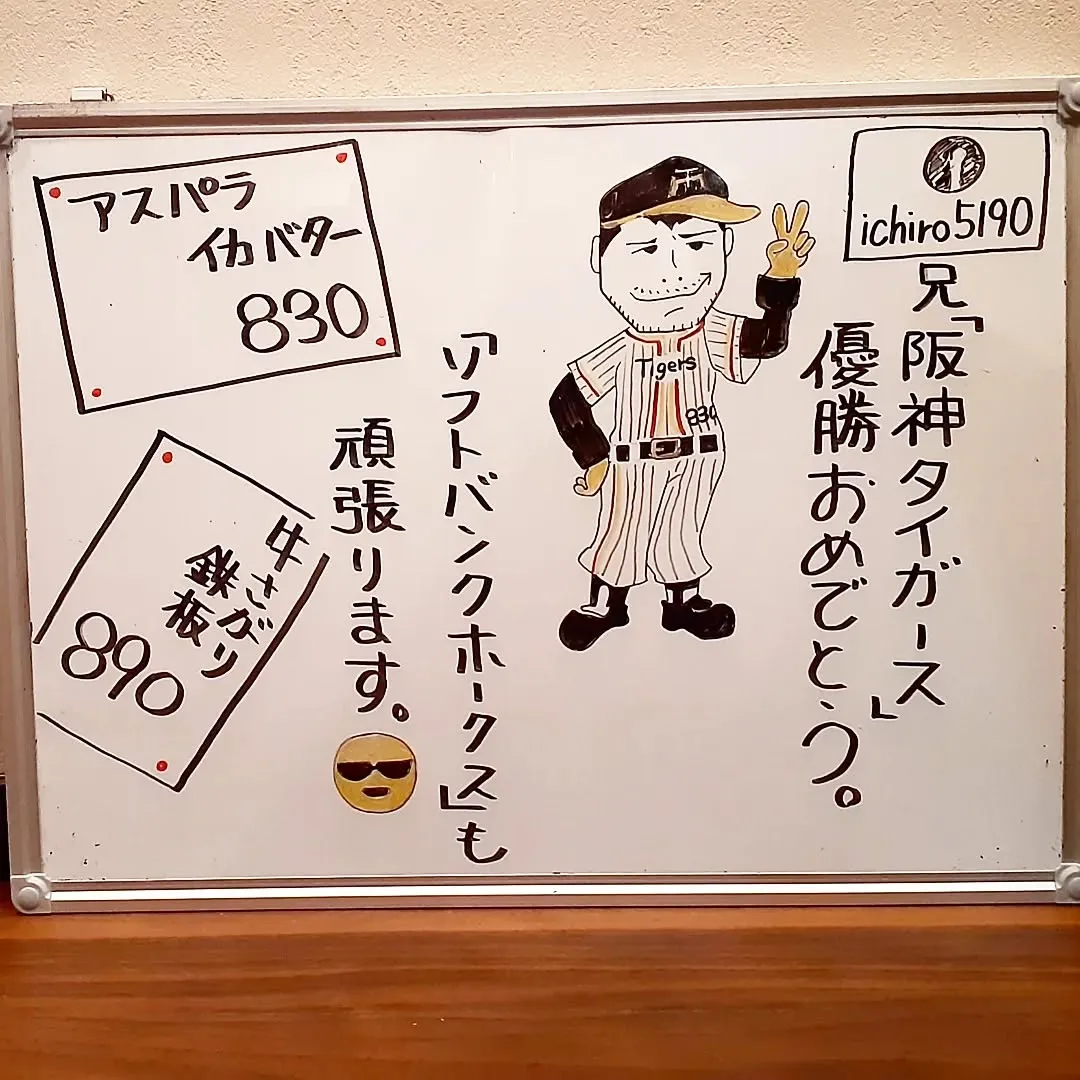 ichiro5190
兄「阪神タイガース」
優勝おめでとう。
Tigers
830
「ソフトバンクホークス」も
頑張ります。
アスパラ
イカバター
830
牛さがり
鉄板
890